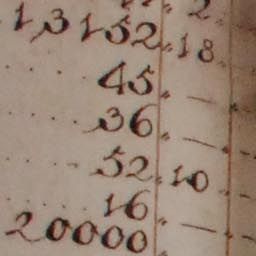 1,3152.18.
45. —
36. —
52.10
16. —
20000. —